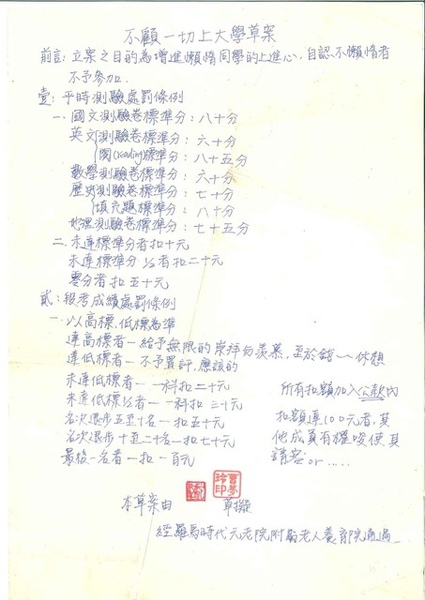 不顧一切上大學草案
前言：立案之目的為增進懶惰同學的上進心，自認不懶惰者
不予參加．
壹：平時測驗處罰條例
一、國文測驗卷標準分：八十分
英文測驗卷標準分：六十分
閱(reading)標準分：八十五分
數學測驗卷標準分：六十分
歷史測驗卷標準分：七十分
填充題標準分：八十分
地理測驗卷標準分：七十五分
二、未達標準分者扣十元
未達標準分½者扣二十元
零分者扣五十元
貳：報考成績處罰條例
一、以高標，低標為準
達高標者一給予無限的崇拜和羨慕，至於錢～～休想
達低標者一不予置評，應該的
未達低標者一一科扣二十元
未達低標½者一一科扣三十元
名次退步五至十名一扣五十元
名次退步十至二十名一扣七十元
最後一名者一扣一百元
所有扣額加入公款內
扣額達100元者，其
他成員有權唆使其
請客or．．．．．
本草案由 草擬
經羅馬時代元老院附屬老人養育院通過